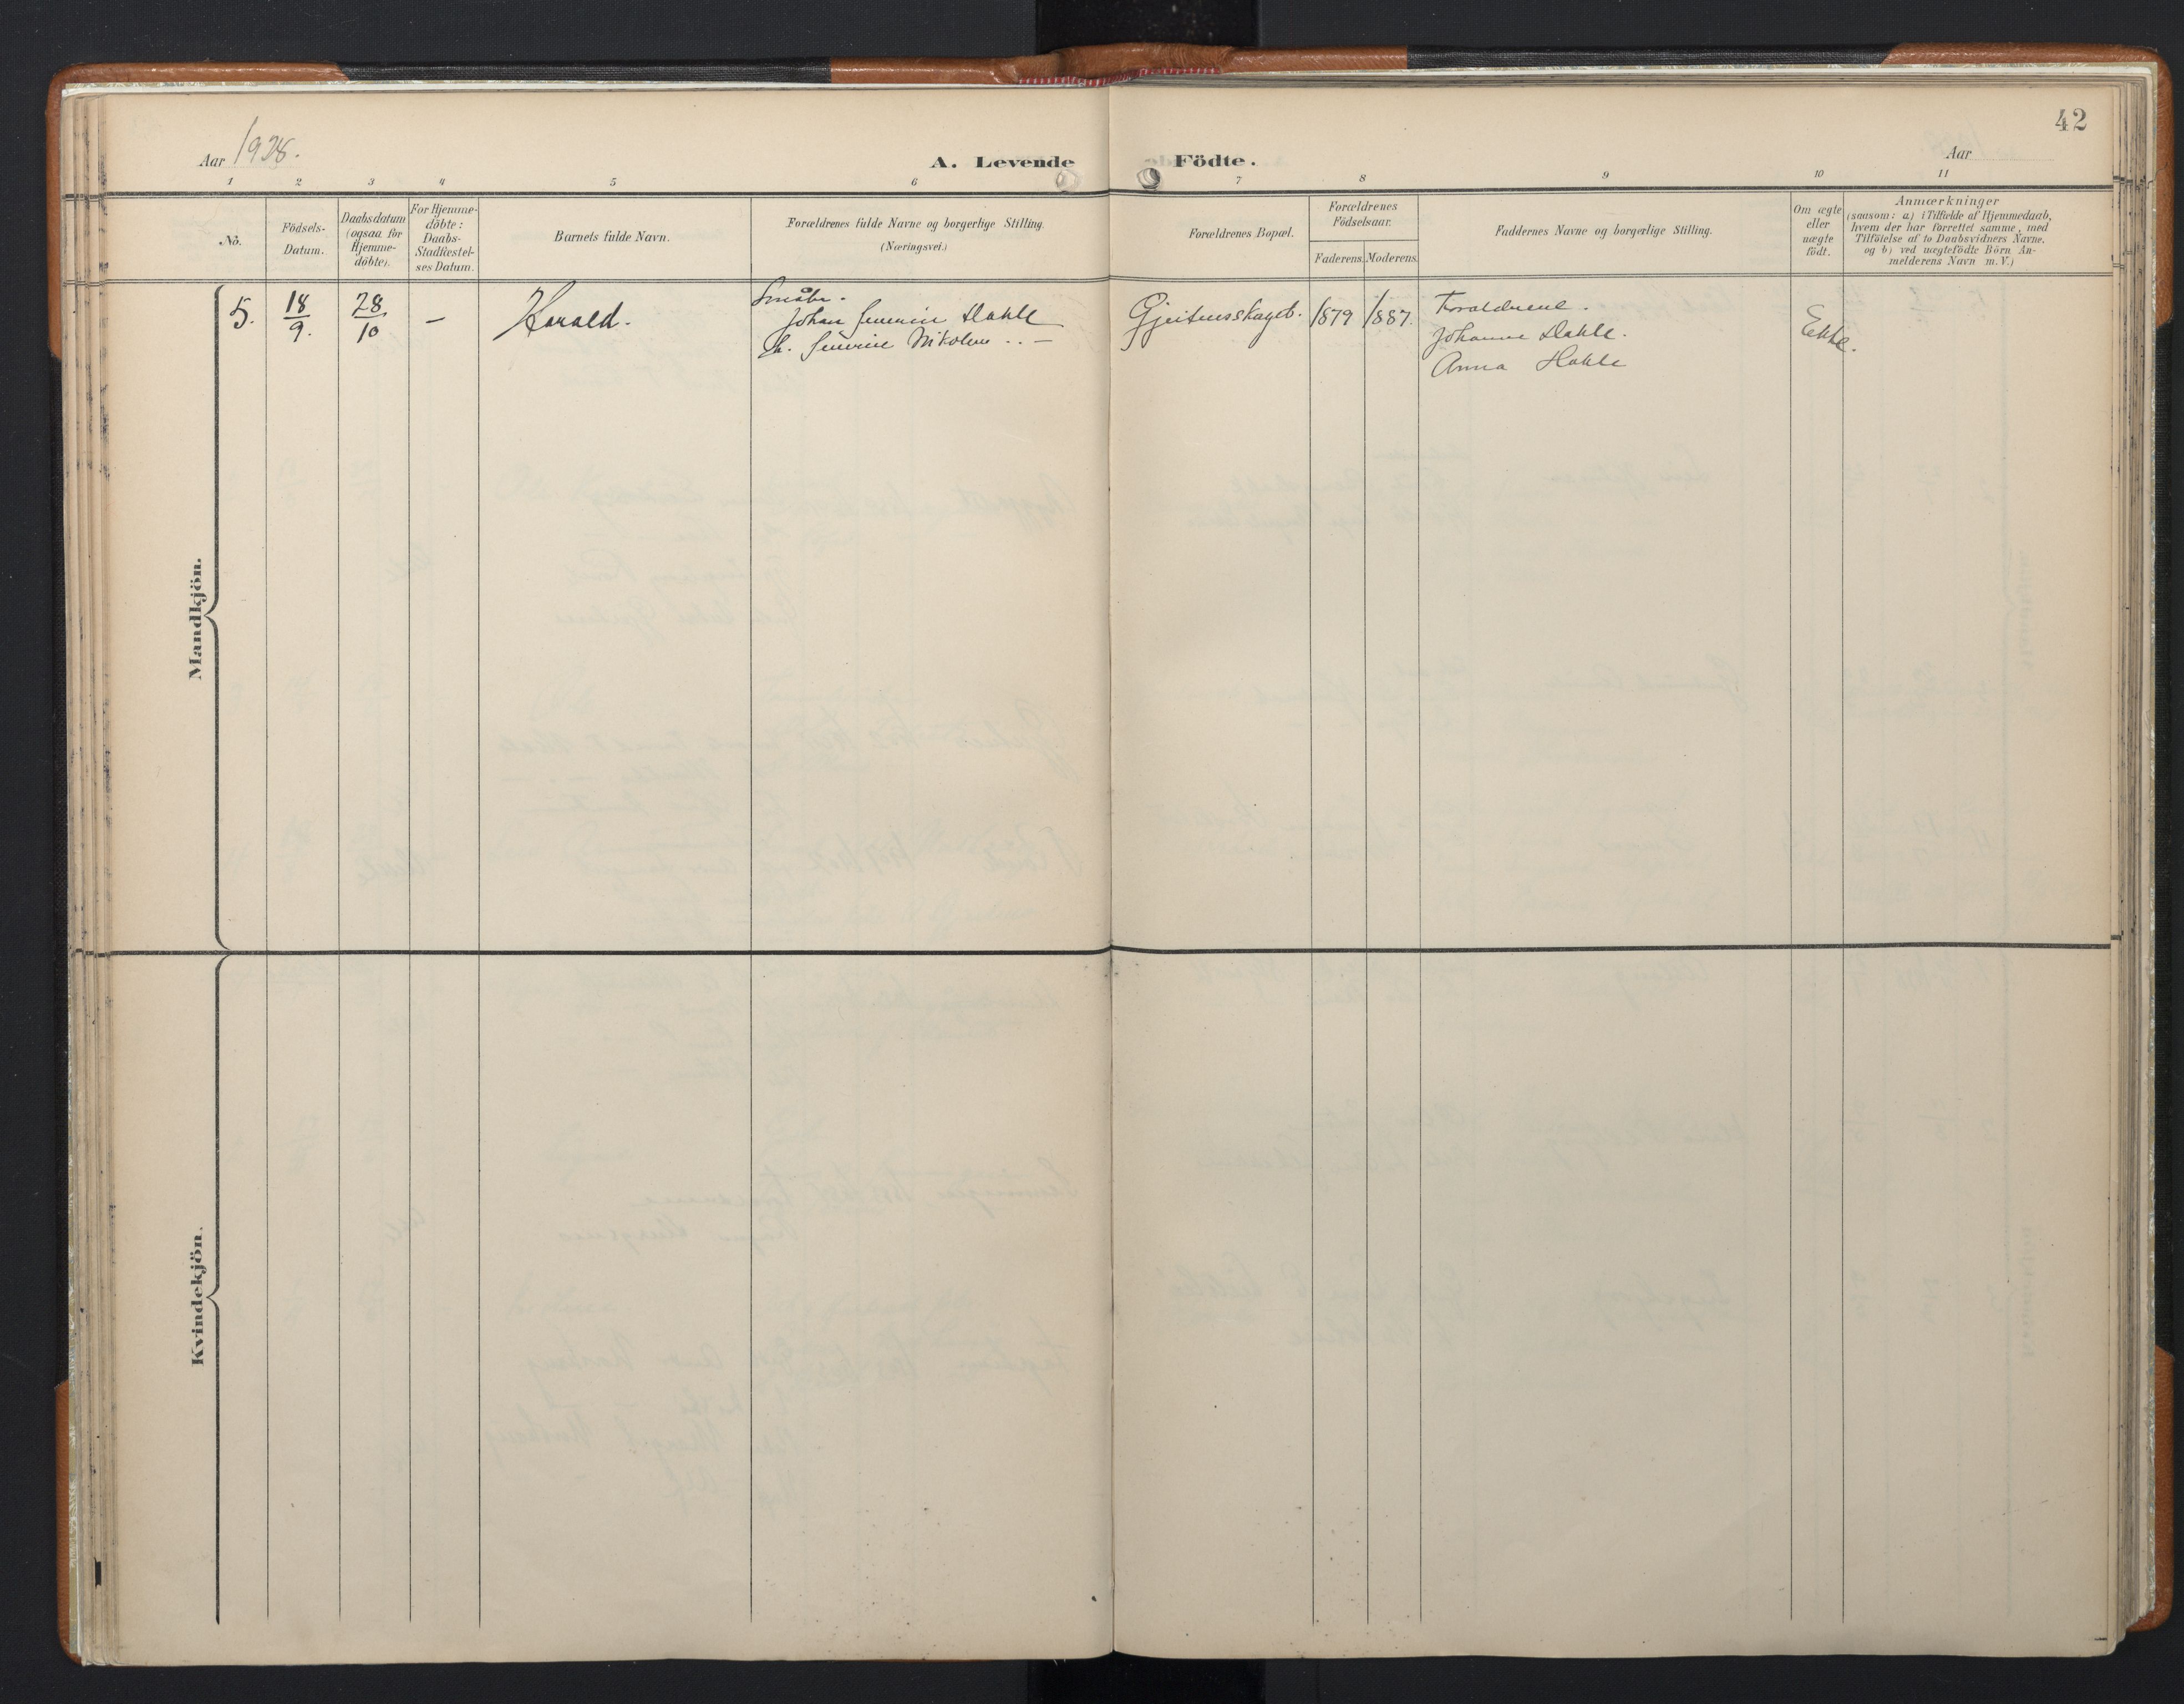 42
Aar 1928.
A. Levende Födte.
Aar
1 2 3 4 5 6 7 8 9 10 11
No.
Födsels-
Datum.
Daabsdatum
(ogsaa for
Hjemme-
döbte).
For Hjemme-
döbte:
Daabs-
Stadfæstel-
ses Datum.
Barnets fulde Navn.
Forældrenes fulde Navne og borgerlige Stilling.
(Næringsvei.)
Forældrenes Bopæl.
Forældrenes
Födselsaar.
Faderens. Moderens.
Faddernes Navne og borgerlige Stilling.
Om ægte
eller
uægte
födt.
Anmærkninger
(saasom: a) i Tilfælde af Hjemmedaab,
hvem der har forrettet samme, med
Tilföielse af to Daabsvidners Navne,
og b) ved uægtefödte Börn An-
melderens Navn m. V.)
Mandkjön.
5.
18
9.
28
10
—
Harald.
Småbr.
Johan Severin Hahle
h. Severine Nikoline .. —
1879
1887.
Foraldrene.
Johanne Hahle.
Anna Hahle
Ekte.
Kvindekjön.